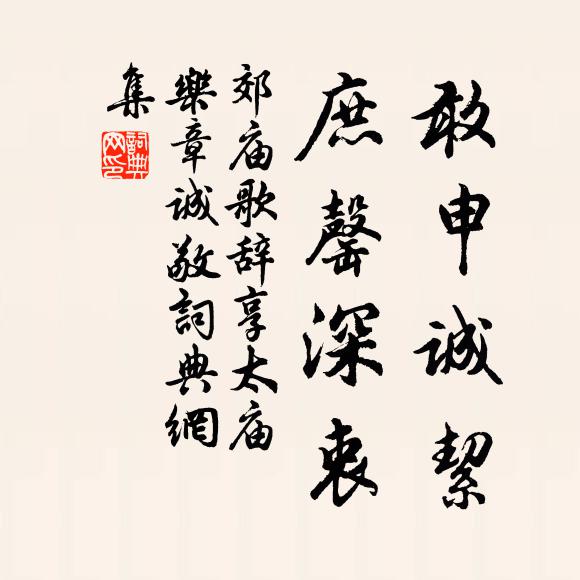 敢申诚絜
庶罄深衷
郊庙歌辞享太庙
樂章诚敬詞典網
集
詞典网印